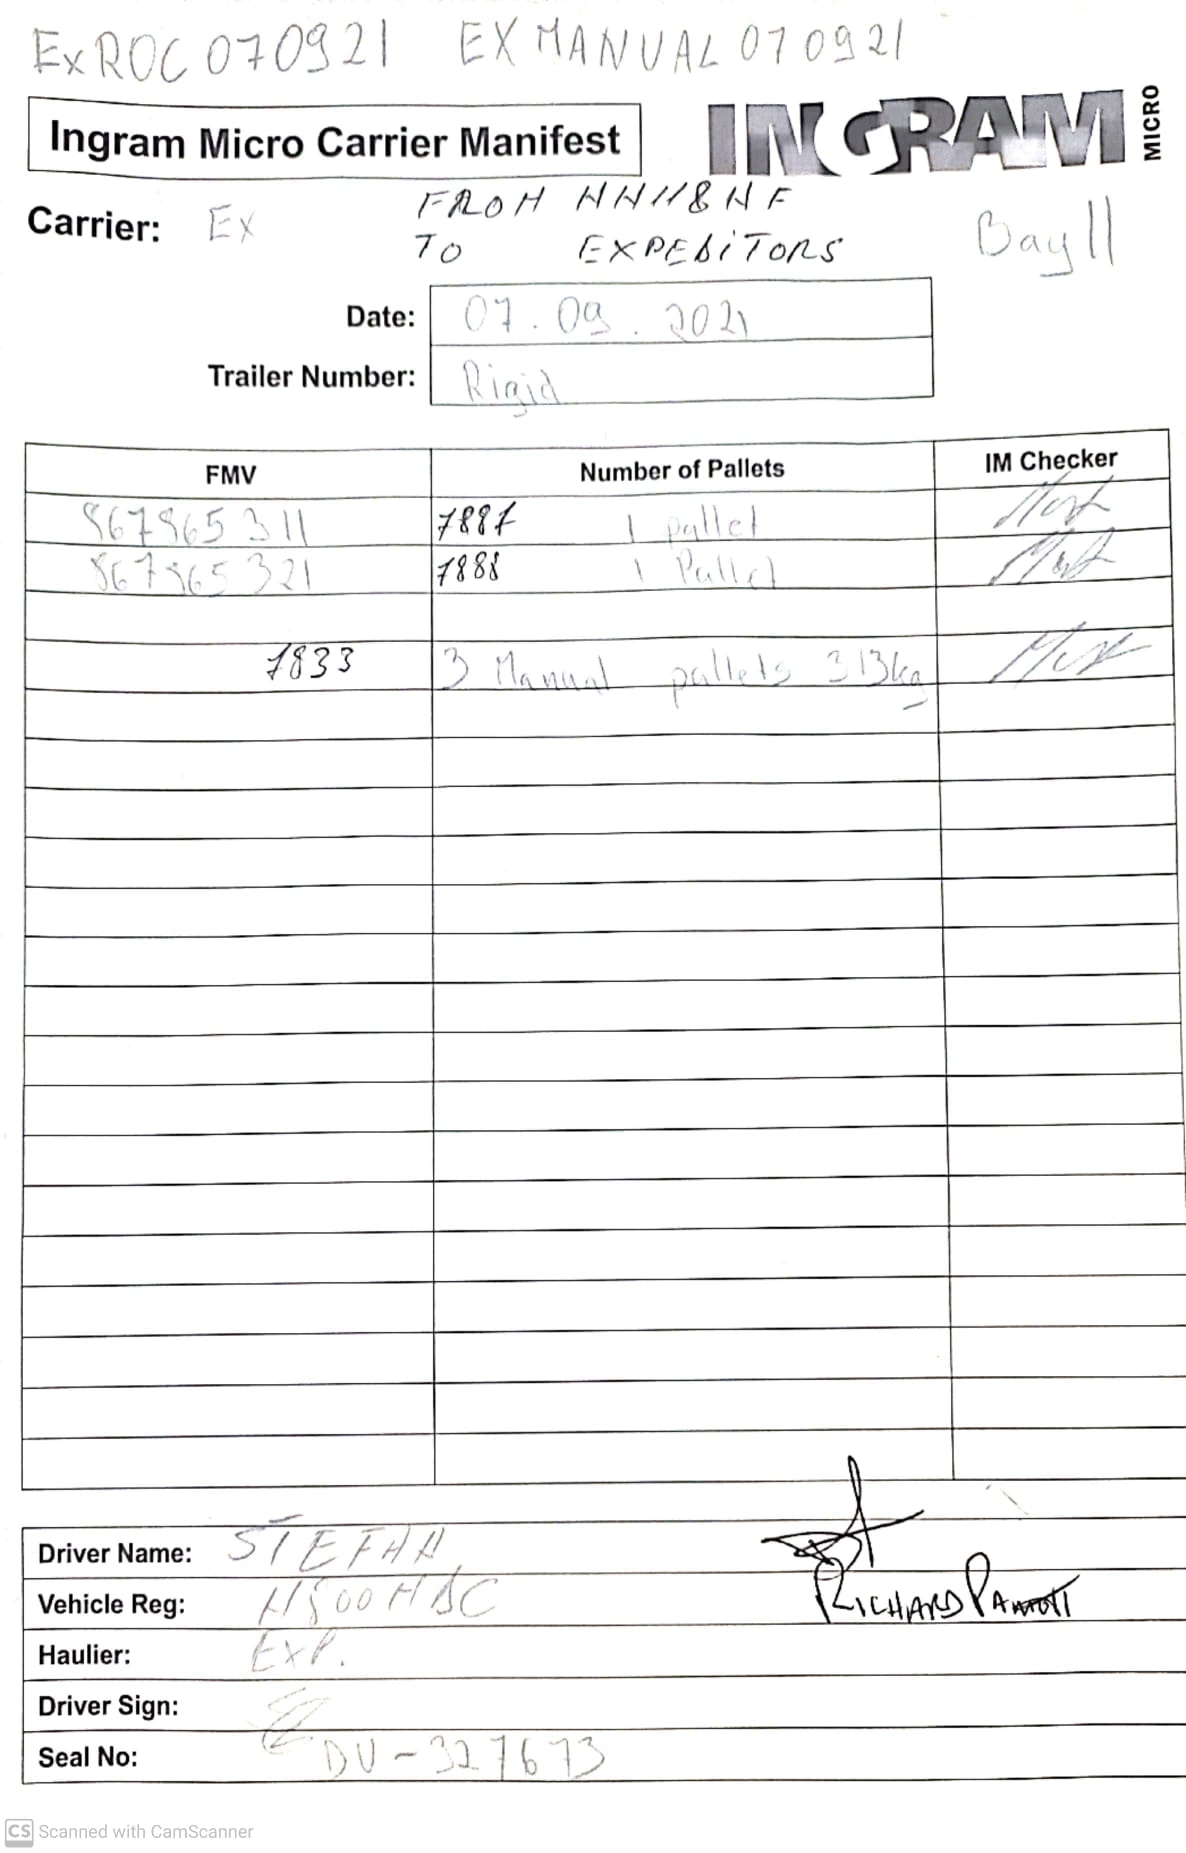 ExROC 070921 EX MANUAL 070921
Ingram Micro Carrier Manifest
INGRAM MICRO
Carrier: Ex
FROM NN118NF
TO EXPEDITORS
Bay 11
Date: 07.09.2021
Trailer Number: Rigid
FMV Number of Pallets IM Checker
867865311 7887 1 pallet
867865321 7888 1 Pallet
7833 3 Manual pallets 313kg
Driver Name: STEFAN
Vehicle Reg:
RICHARD
Haulier: EXP.
Driver Sign:
Seal No: DU-327673
CS Scanned with CamScanner